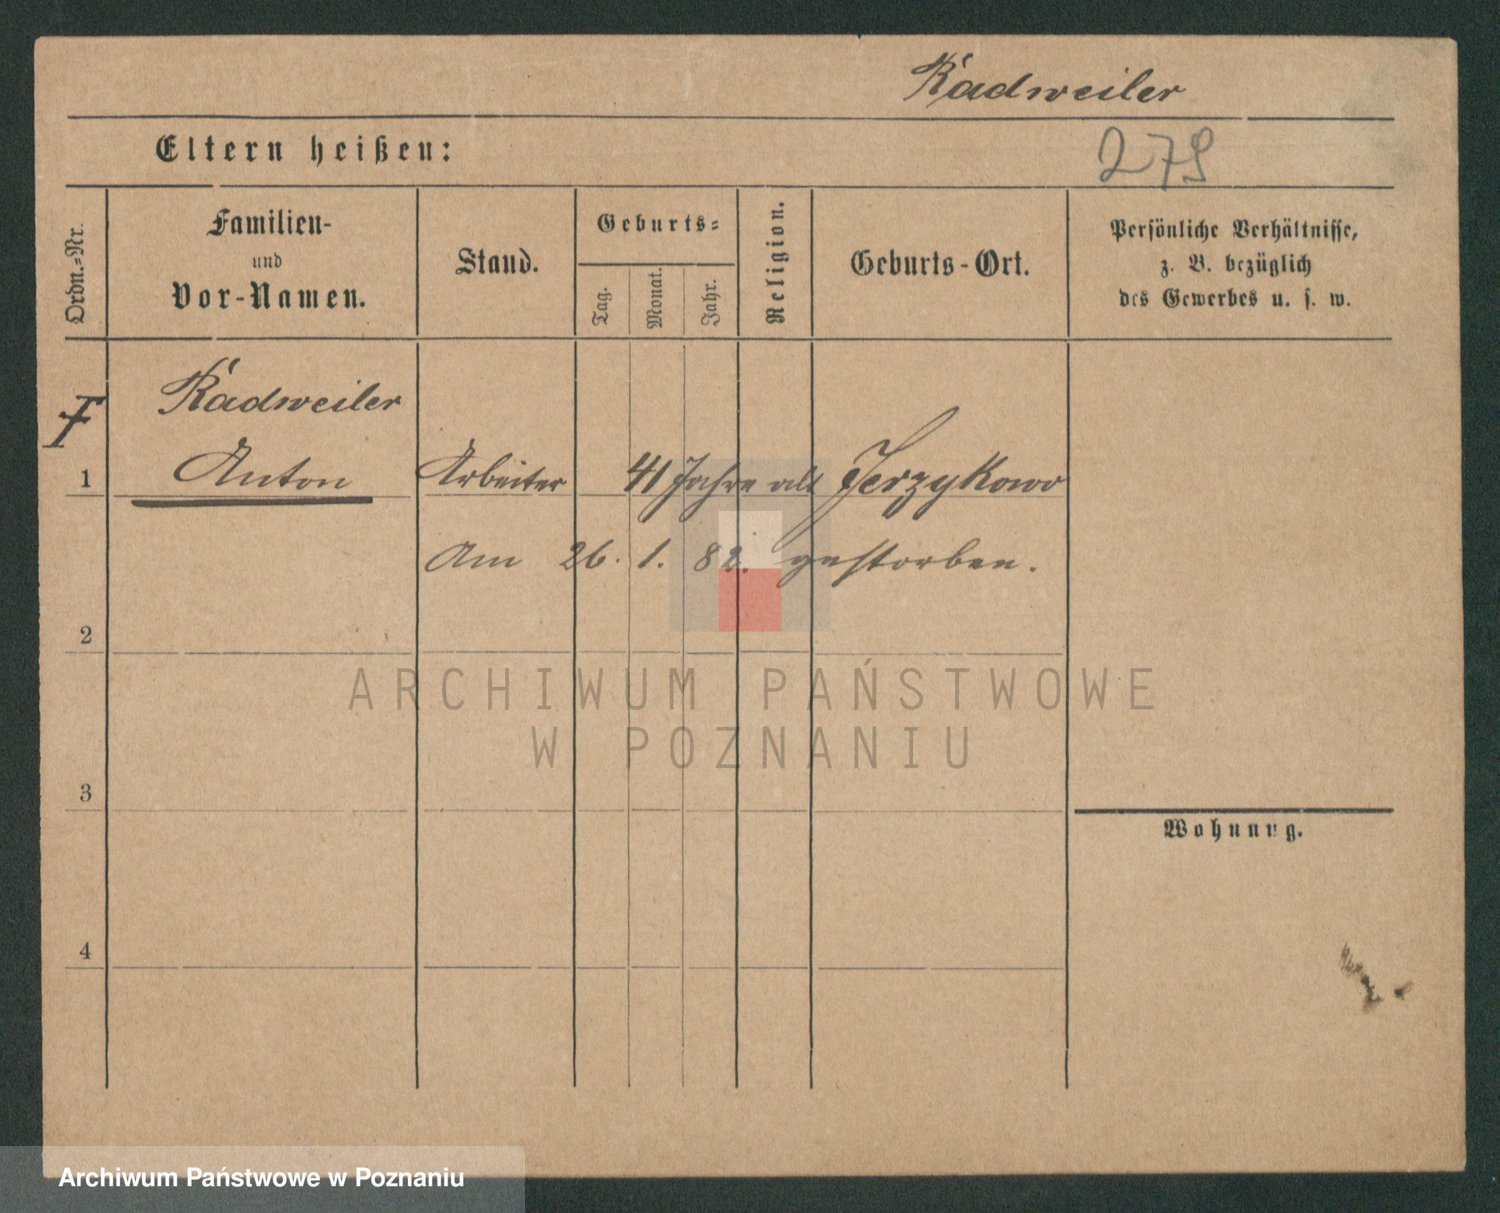 Radweiler
Eltern heißen:
279
Ordn.-Nr.
Familien-
und
Vor-Namen.
Stand.
Geburts-
Tag.
Monat.
Jahr.
Religion.
Geburts-Ort.
Persönliche Verhältnisse,
z. B. bezüglich
des Gewerbes u. s. w.
Radweiler
1 Anton Arbeiter 41 Jahre alt Jerzykowo
Am 26. 1. 82. gestorben.
2
3
4
Wohnung.
ARCHIWUM PAŃSTWOWE
W POZNANIU
Archiwum Państwowe w Poznaniu